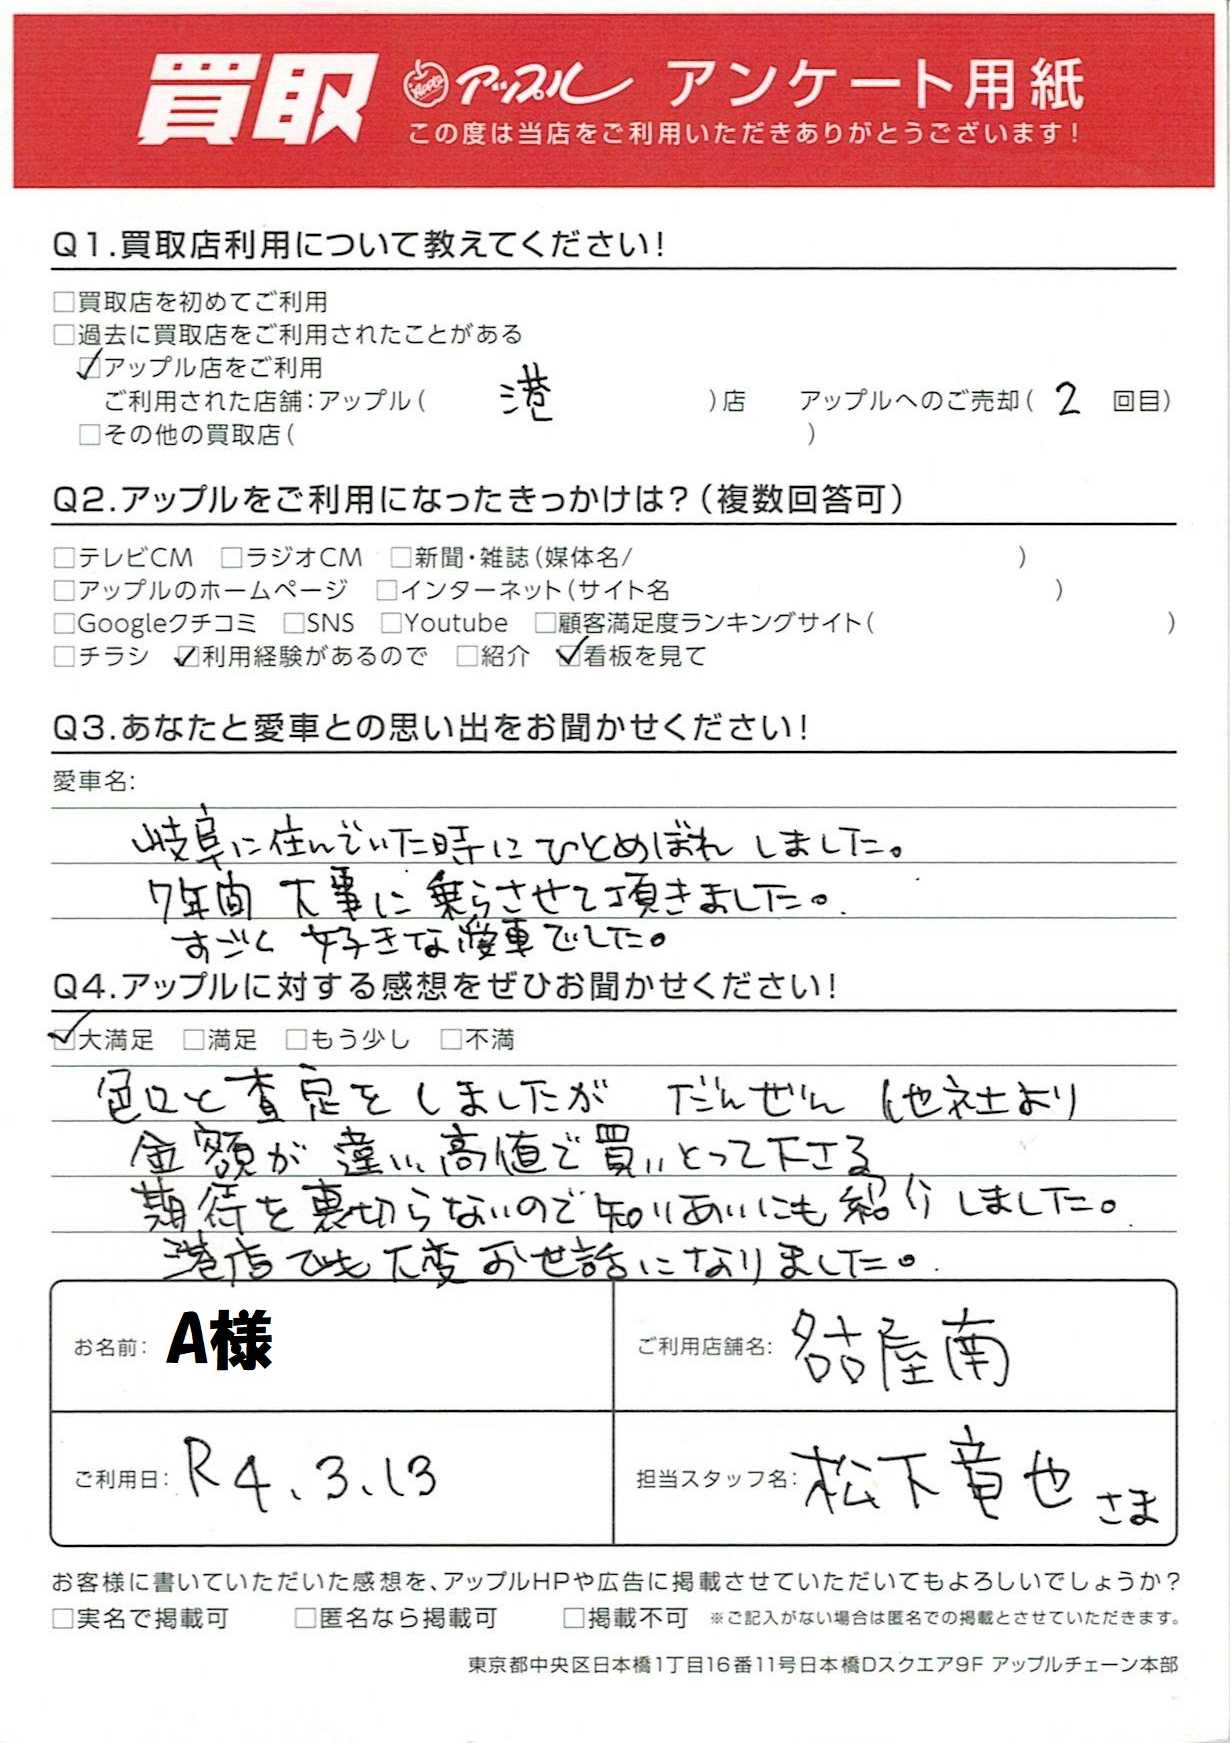 買取 アップル アンケート用紙
この度は当店をご利用いただきありがとうございます!
Q1.買取店利用について教えてください!
□買取店を初めてご利用
□過去に買取店をご利用されたことがある
☑アップル店をご利用
ご利用された店舗:アップル( 港 )店 アップルへのご売却( 2 回目)
□その他の買取店( )
Q2.アップルをご利用になったきっかけは?(複数回答可)
□テレビCM □ラジオCM □新聞・雑誌(媒体名/ )
□アップルのホームページ □インターネット(サイト名 )
□Googleクチコミ □SNS □Youtube □顧客満足度ランキングサイト( )
□チラシ ☑利用経験があるので □紹介 ☑看板を見て
Q3.あなたと愛車との思い出をお聞かせください!
愛車名:
岐阜に住んでいた時にひとめぼれしました。
7年間 大事に乗らさせて頂きました。
すごく 好きな愛車でした。
Q4.アップルに対する感想をぜひお聞かせください!
☑大満足 □満足 □もう少し □不満
色口と査定をしましたが だんぜん 他社より
金額が違い、高値で買いとって下さる
期待を裏切らないので知りあいにも紹介しました。
港店でも大変お世話になりました。
お名前: A様 ご利用店舗名: 名古屋南
ご利用日: R4、3、13 担当スタッフ名: 松下竜也さま
お客様に書いていただいた感想を、アップルHPや広告に掲載させていただいてもよろしいでしょうか?
□実名で掲載可 □匿名なら掲載可 □掲載不可 ※ご記入がない場合は匿名での掲載とさせていただきます。
東京都中央区日本橋1丁目16番11号日本橋Dスクエア9F アップルチェーン本部